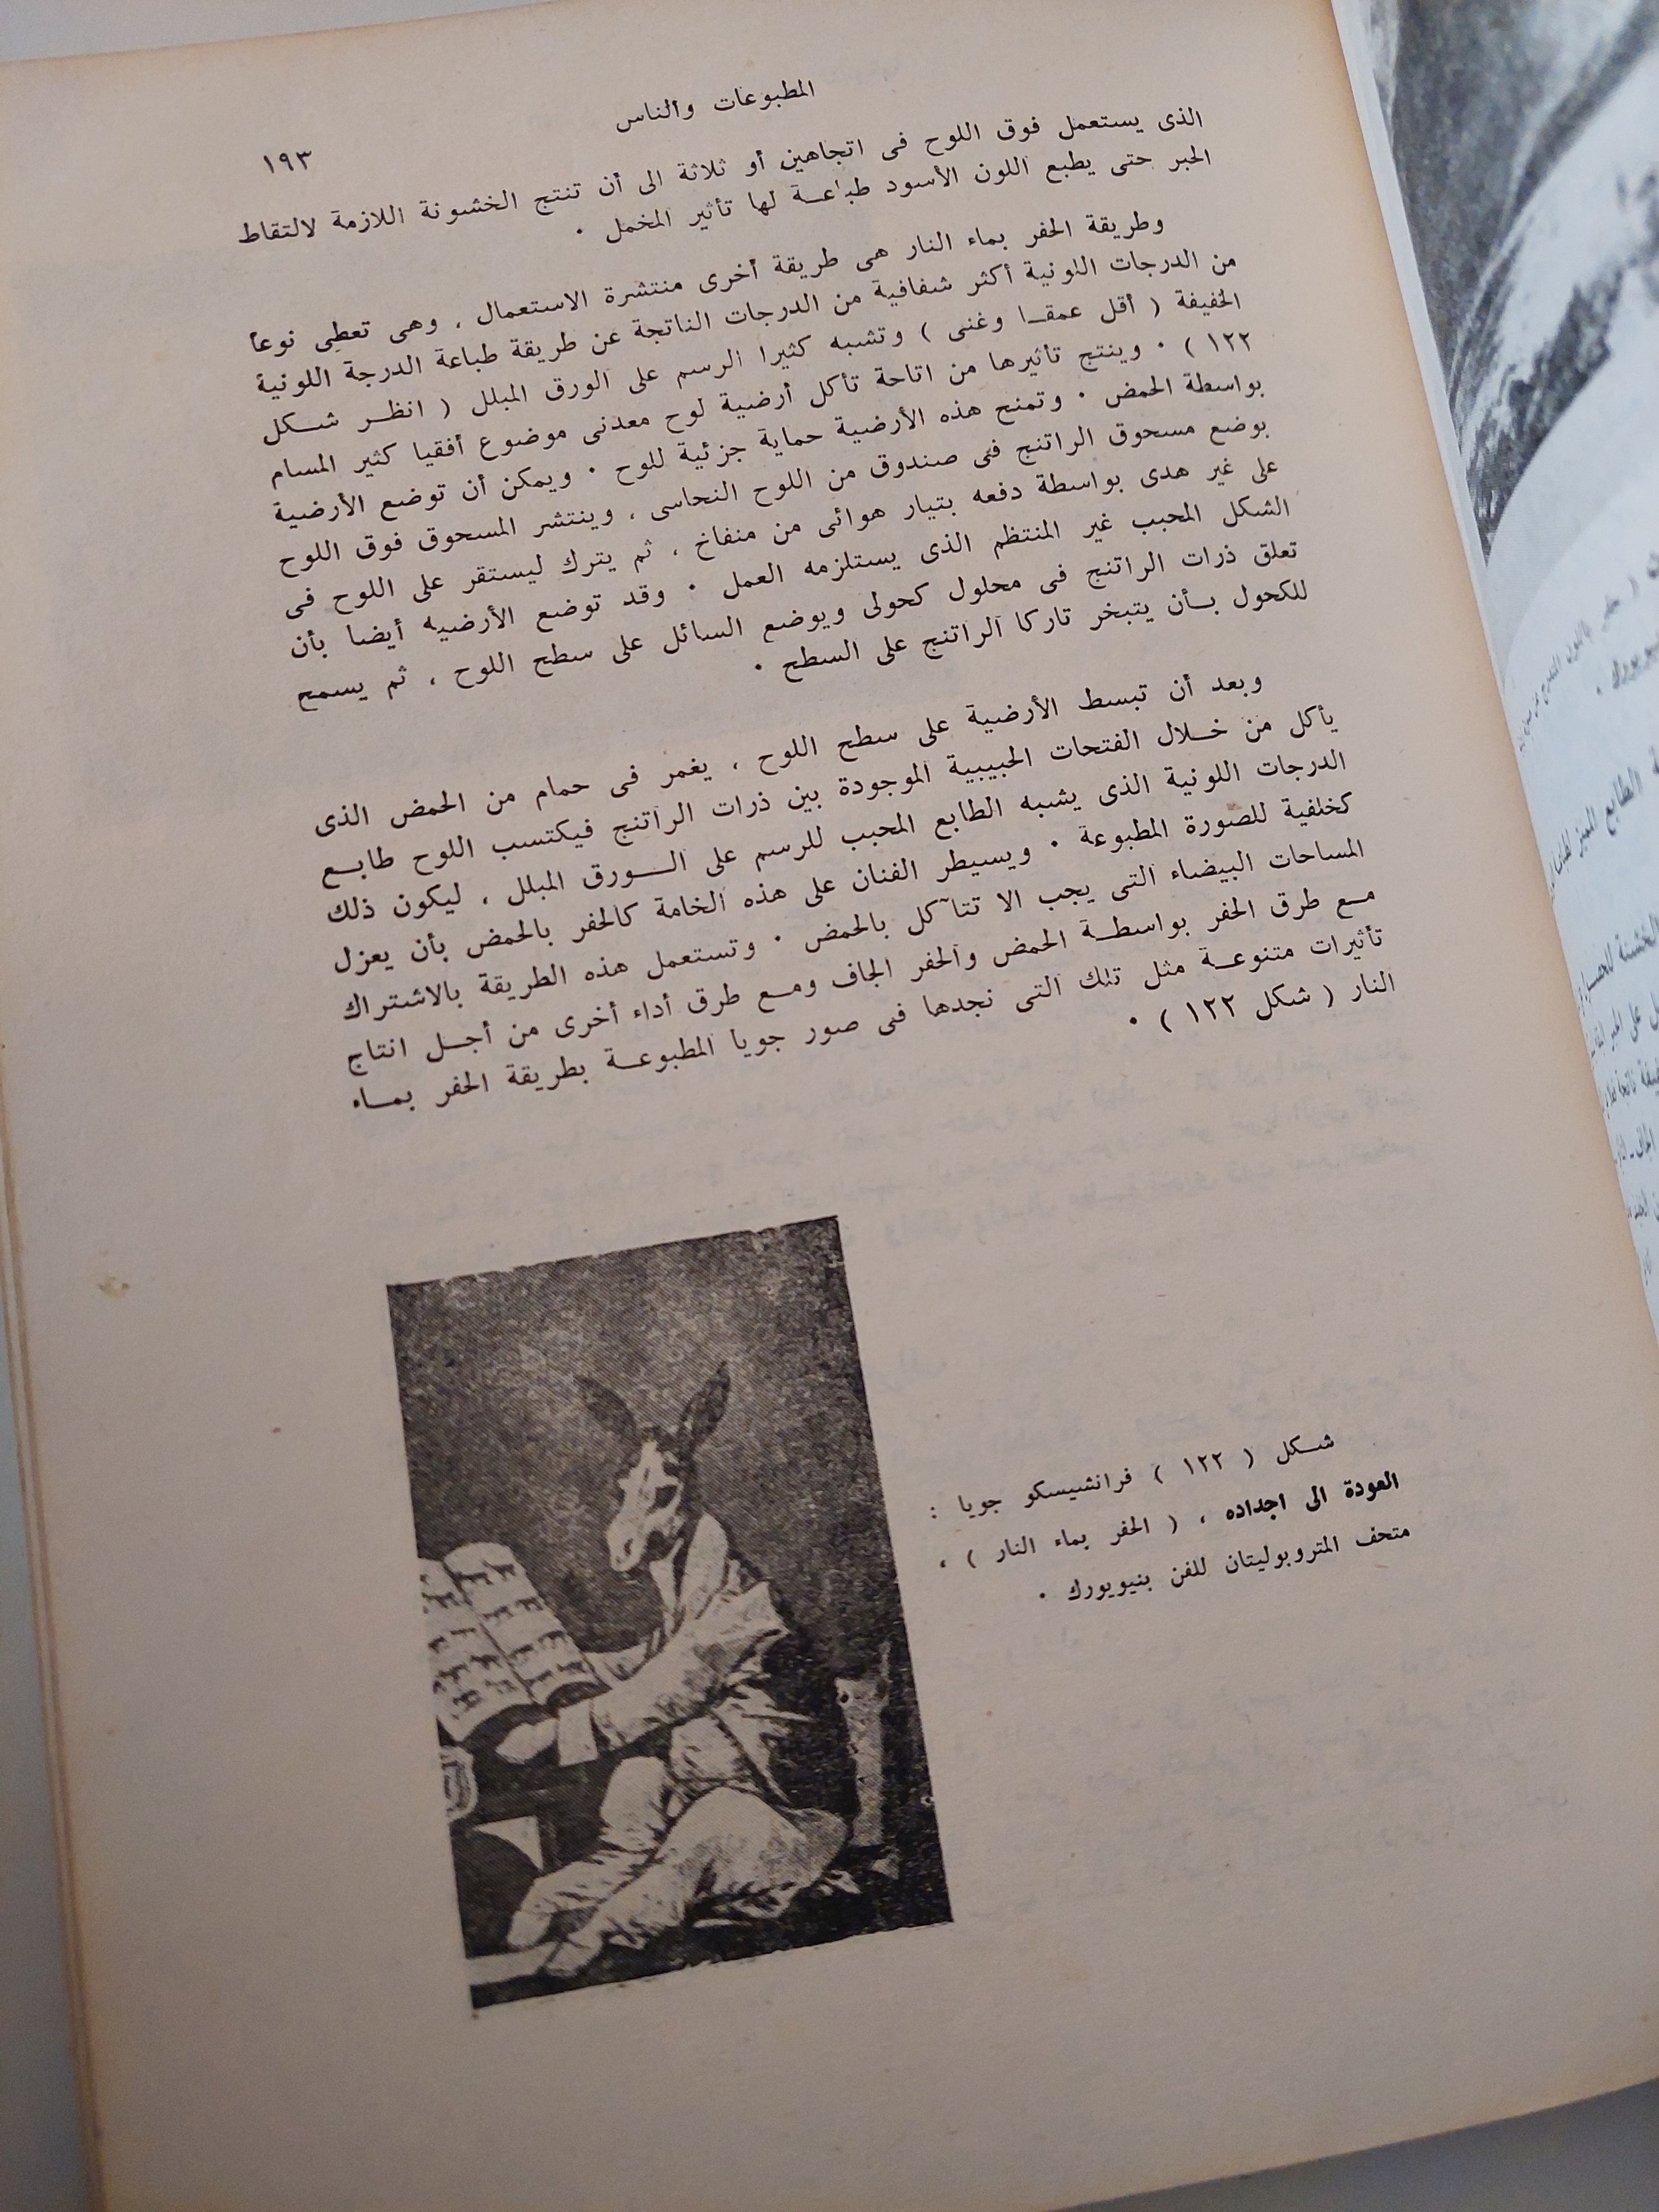 المطبوعات والناس
١٩٣
الذى يستعمل فوق اللوح فى اتجاهين أو ثلاثة الى أن تنتج الخشونة اللازمة لالتقاط
الحبر حتى يطبع اللون الأسود طباعـة لها تأثير المخمل ٠
وطريقة الحفر بماء النار هى طريقة أخرى منتشرة الاستعمال ، وهى تعطى نوعا
من الدرجات اللونية أكثر شفافية من الدرجات الناتجة عن طريقة طباعة الدرجة اللونية
الخفيفة ( أقل عمقـا وغنى ) وتشبه كثيرا الرسم على الورق المبلل ( انظـر شـكل
١٢٢ ) ٠ وينتج تأثيرها من اتاحة تأكل أرضية لوح معدنى موضوع أفقيا كثير المسام
بواسطة الحمض ٠ وتمنح هذه الأرضية حماية جزئية للوح ٠ ويمكن أن توضع الأرضية
بوضع مسحوق الراتنج فى صندوق من اللوح النحاسى ، وينتشر المسحوق فوق اللوح
على غير هدى بواسطة دفعه بتيار هوائى من منفاخ ، ثم يترك ليستقر على اللوح فى
الشكل المحبب غير المنتظم الذى يستلزمه العمل ٠ وقد توضع الأرضيه أيضا بأن
تعلق ذرات الراتنج فى محلول كحولى ويوضع السائل على سطح اللوح ، ثم يسمح
للكحول بـأن يتبخر تاركا الراتنج على السطح ٠
وبعد أن تبسط الأرضية على سطح اللوح ، يغمر فى حمام من الحمض الذى
يأكل من خـلال الفتحات الحبيبية الموجودة بين ذرات الراتنج فيكتسب اللوح طابـع
الدرجات اللونية الذى يشبه الطابع المحبب للرسم على الـورق المبلل ، ليكون ذلك
كخلفية للصورة المطبوعة ٠ ويسيطر الفنان على هذه الخامة كالحفر بالحمض بأن يعزل
المساحات البيضاء التى يجب الا تتآكل بالحمض ٠ وتستعمل هذه الطريقة بالاشتراك
مـع طرق الحفر بواسطـة الحمض والحفر الجاف ومـع طرق أداء أخرى من أجـل انتاج
تأثيرات متنوعـة مثل تلك التى نجدها فى صور جويا المطبوعـة بطريقة الحفر بمـاء
النار ( شكل ١٢٢ ) ٠
شـكل ( ١٢٢ ) فرانشيسكو جويا :
العودة الى اجداده ، ( الحفر بماء النار ) ،
متحف المتروبوليتان للفن بنيويورك ٠